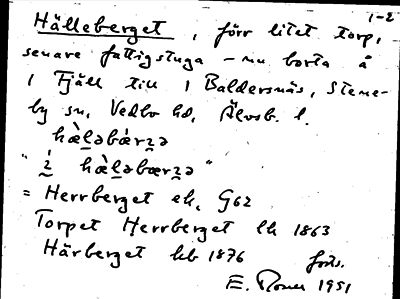 1-2
Hälleberget, förr litet torp,
senare fattigstuga – nu borta å
1 Fjäll till 1 Baldersnäs, Stene-
by sn, Vedbo hd, Älvsb. l.
hæ̀ləbǽrɜə
"i hæ̀ləbærɜə"
= Herrberget ek. G62
Torpet Herrberget lk 1863
Härberget hb 1876
forts.
E. 1951